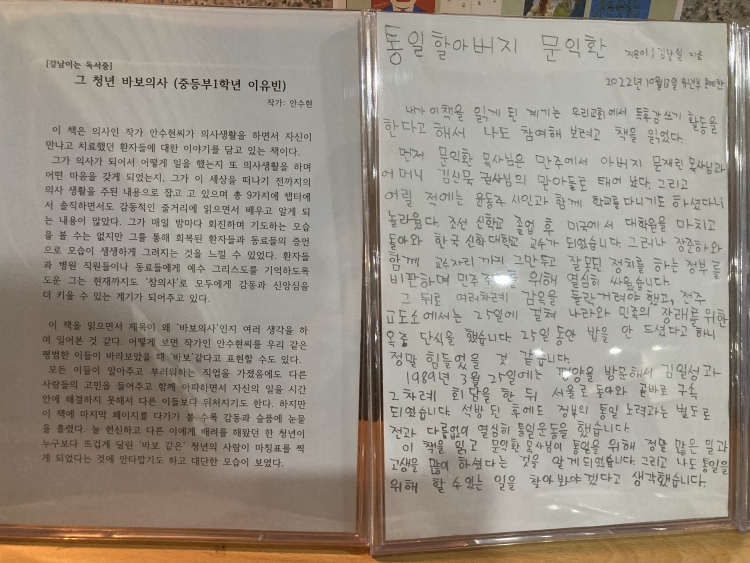 [강남이는 독서중]
그 청년 바보의사 (중등부1학년 이유빈)
작가: 안수현
이 책은 의사인 작가 안수현씨가 의사생활을 하면서 자신이
만나고 치료했던 환자들에 대한 이야기를 담고 있는 책이다.
그가 의사가 되어서 어떻게 일을 했는지 또 의사생활을 하며
어떤 마음을 갖게 되었는지, 그가 이 세상을 떠나기 전까지의
의사 생활을 주된 내용으로 잡고 고 있으며 총 9가지에 챕터에
서 솔직하면서도 감동적인 줄거리에 읽으면서 배우고 알게 되
는 내용이 많았다. 그가 매일 밤마다 회진하며 기도하는 모습
을 볼 수는 없지만 그를 통해 회복된 환자들과 동료들의 증언
으로 모습이 생생하게 그려지는 것을 느낄 수 있었다. 환자들
과 병원 직원들이나 동료들에게 예수 그리스도를 기억하도록
도운 그는 현재까지도 '참의사'로 모두에게 감동과 신앙심을
더 키울 수 있는 계기가 되어주고 있다.
이 책을 읽으면서 제목이 왜 '바보의사'인지 여러 생각을 하
며 읽어본 것 같다. 어떻게 보면 작가인 안수현씨를 우리 같은
평범한 이들이 바라보았을 때 '바보'같다고 표현할 수도 있다.
모든 이들이 알아주고 부러워하는 직업을 가졌음에도 다른
사람들의 고민을 들어주고 함께 아파하면서 자신의 일을 시간
안에 해결하지 못해서 다른 이들보다 뒤처지기도 한다. 하지만
이 책에 마지막 페이지를 다가가 볼 수록 감동과 슬픔에 눈물
을 흘렸다. 늘 헌신하고 다른 이에게 배려를 해왔던 한 청년이
누구보다 뜨겁게 달린 '바보 같은' 청년의 사람이 마침표를 찍
게 되었다는 것에 안타깝기도 하고 대단한 모습이 보였다.
통일할아버지 문익환 지은이 | 김남일 지음
2022년 10월 13일 유년부
내가 이책을 읽게 된 계기는 우리교회에서 독후감 쓰기 활동을
한다고 해서 나도 참여해 보려고 책을 읽었다.
먼저 문익환 목사님은 만주에서 아버지 문재린 목사님과
어머니 김신묵 권사님의 맏아들로 태어 났다. 그리고
어릴 적에는 윤동주 시인과 함께 학교를 다니기도 하셨다니
놀라웠다. 조선 신학교 졸업 후 미국에서 대학원을 마치고
돌아와 한국 신학대학교 교수가 되었습니다. 그러나 장준하와
함께 교수자리 까지 그만두고 잘못된 정치를 하는 정부를
비판하며 민주 위해 열심히 싸웠습니다.
그 뒤로 여러차례 감옥을 들락거려야 했고, 전주
교도소에서는 25일에 걸쳐 나라와 민족의 장래를 위한
옥중 단식을 했습니다. 25일 동안 밥을 안 드셨다고 하니
정말 힘들었을 것 같습니다.
1989년 3월 25일에는 평양을 방문해서 김일성과
그차례 회담을 한 뒤 서울로 돌아와 곧바로 구속
되었습니다. 석방 된 후에도 정부의 통일 노력과는 별도로
전과 다름없이 열심히 통일운동을 했습니다.
이 책을 읽고 문익환 목사님이 통일을 위해 정말 많은 일과
고생을 많이 하셨다는 것을 알게되었습니다. 그리고 나도 통일을
위해 할 수있는 일을 찾아봐야겠다고 생각했습니다.